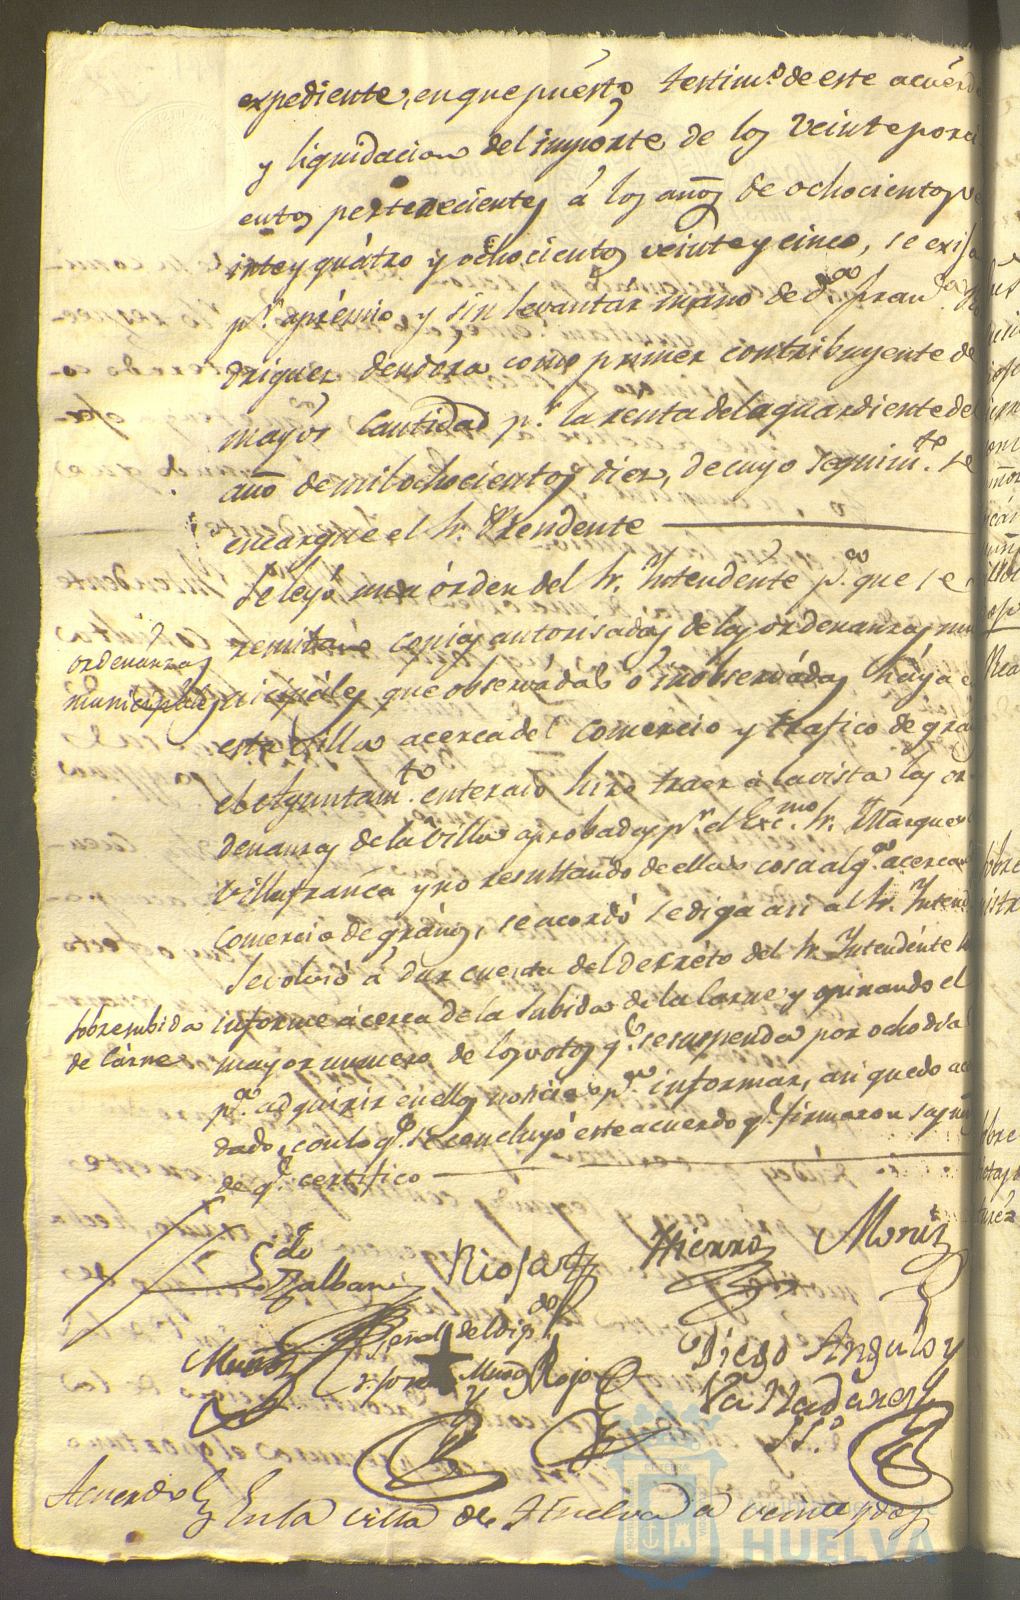 expediente, en que puesto testim.o de este acuerdo
y liquidacion del importe de los veinte por ci
entos pertenecientes á los años de ochocientos ve
inte y quátro y ochocientos veinte y cinco, se exija
p.r aprémio y sin levantar mano de d.a Fran.ca Ro
driguez deudora como primer contribuyente de
mayór Cantidad p.r la renta del aguardiente del
año de mil ochocientos diez, de cuyo seguim.to se
encargue el Sr. Precidente
Se leyó una órden del Sr. Intendente p.a que se
remitan copias autorisadas de las ordenanzas mu
ordenanzas
municipáles
nicipáles que observadas ó inobservádas háya en
esta Villa acerca del comercio y trafico de gra
el Ayuntam.to enterado hizo traer á la vista las or
denanzas de la Villa aprobadas p.r el Exc.mo Sr. Marques
Villafranca y no resultando de ellas cosa alg.a acerca
comercio de grános, se acordó se diga asi al Sr. Intend
Se volvió á dar cuenta del decréto del Sr. Intendénte
Sobre subida
de Cárne
informe ácerca de la subida de la Carne y opinando el
mayor numero de los votos q.e se suspenda por ocho dias
p.a adquirir en ellos noticias p.a informar, asi quedo acor
dado, con lo q.e se concluyó este acuerdo q.e firmaron
de q.e certifico
Ldo Zalban Hierro Moniz
Muñoz señal del Dip.do
Muñoz Rojo Diego Angulo y
Valladares
SS.o
Acuerdo En la villa de Huelva a veinte y dos
HUELVA